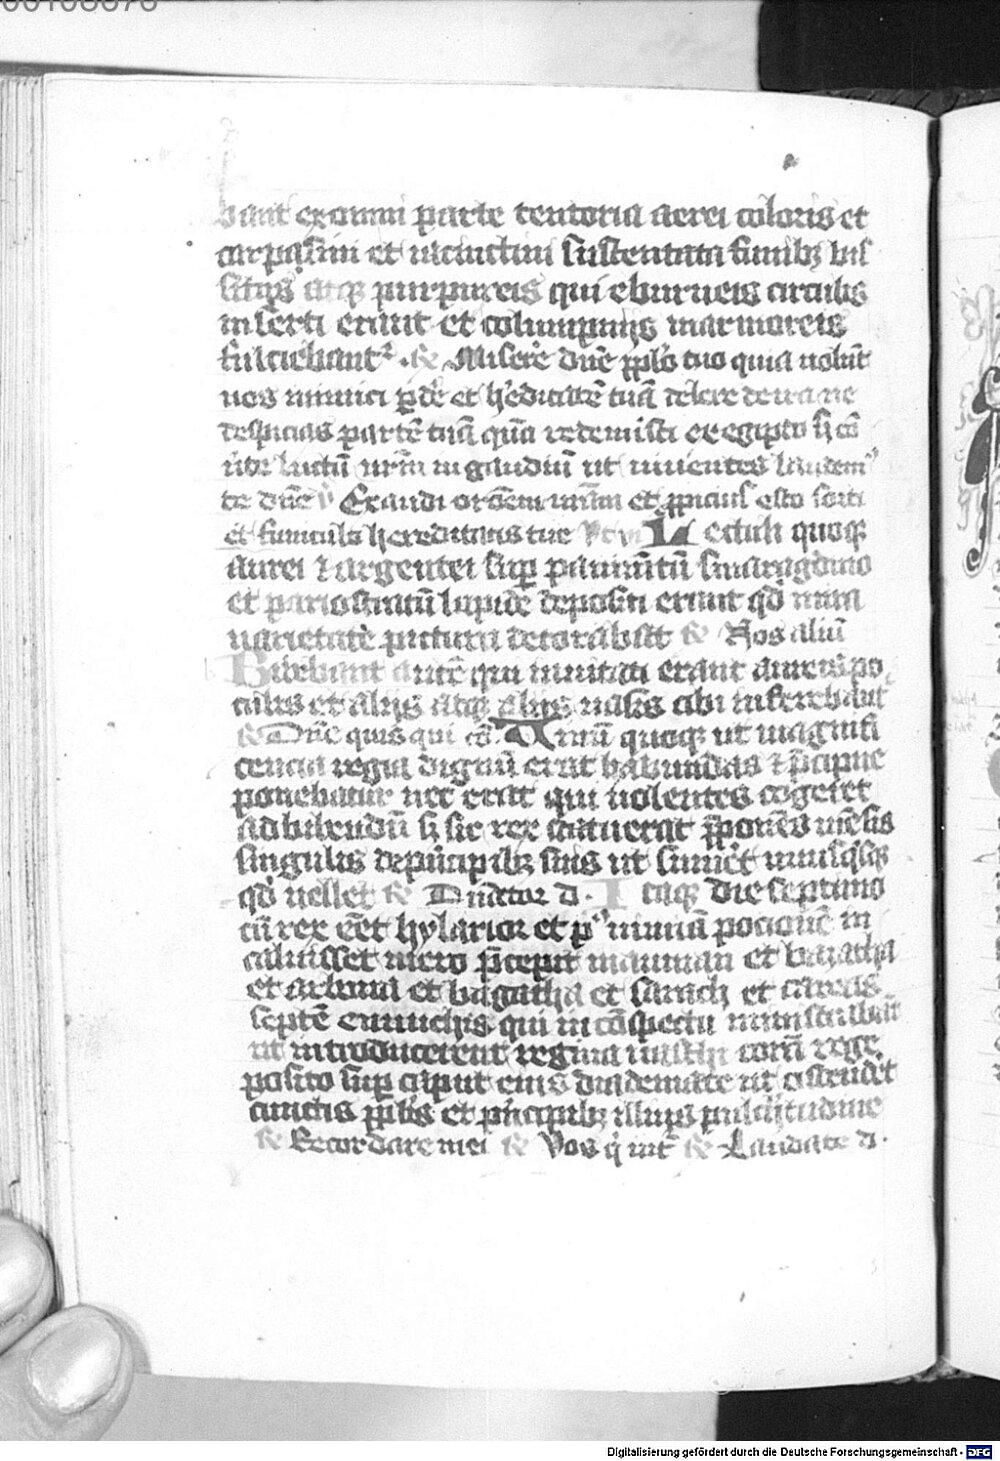 bant ex omni parte tentoria aerei coloris et
carpasini et iacinctini sustentata funibꝫ bis
sinis atqꝫ purpureis qui eburneis circulis
inserti erant et columpnis marmoreis
fulciebantᷣ . ꝶ Miserere dñe pplo tuo quia uolũt
nos inimici ꝑdẽ et hẽditatẽ tuã delere de ne
despicias partẽ tuã quã redemisti ex egipto sꝫ cõ
luctũ nrm in gaudiũ ut uiuentes laudem
te dñe Exaudi orõem meam et ppicius esto sorti
et funiculo hereditatis tue Lectuli quoqꝫ
aurei ⁊ argentei suꝑ pauimẽtũ smaragdino
et pario stratũ lapide depositi erant qđ mira
uarietate pictura decorabat ꝶ Nos aliũ
Bibebant autẽ qui inuitati erant aureis po
culis et alijs atqꝫ alijs uasis cibi inferebãt
ꝶ Dñe quis qui cõ. Uinũ quoqꝫ ut magnifi
cencia regia dignũ erat habundãs ⁊ p̃cipuũ
ponebatur nec erat qui nolentes cogeret
ad bibendũ sꝫ sic rex statuerat p̃ponẽs mẽsis
singulis de principibꝫ suis ut sumeret unusqꝫ
qđ uellet ꝶ Dũctor d. Itaqꝫ die septimo
cũ rex eẽt hylarior et pꝰ nimiã pocionẽ in
caluisset mero p̃cepit mauman et bazatha
et arbona et bagatha et sarach et careas
septẽ eunuchis qui in cõspectu ministrabãt
ut introducerent regina uasthi corã rege
posito suꝑ caput eius diademate ut ostendẽt
cunctis pplis et principibꝫ illius pulcritudinẽ
ꝶ Recordare mei ꝶ Vos qͥ ꝶ Laudate d.
Digitalisierung gefördert durch die Deutsche Forschungsgemeinschaft - DFG